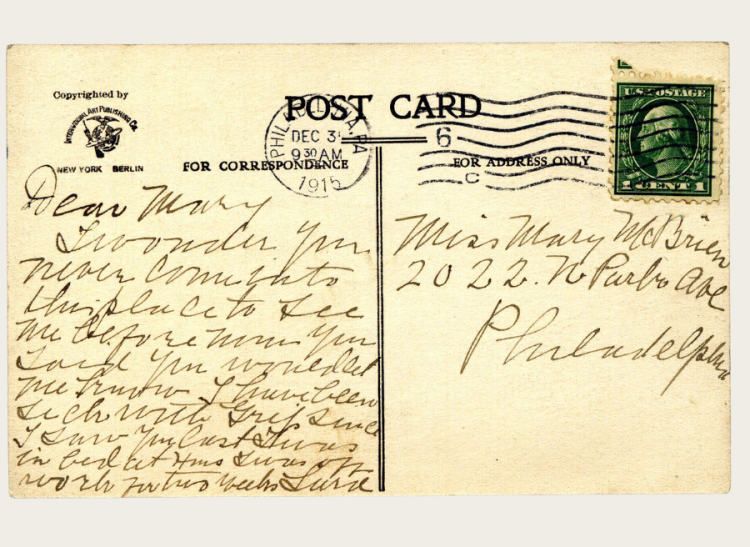 Copyrighted by
INTERNATIONAL ART PUBLISHING CO.
NEW YORK BERLIN
POST CARD
FOR CORRESPONDENCE
FOR ADDRESS ONLY
PHILADELPHIA, PA
DEC 3
9 30 AM
1915
6
C
U.S. POSTAGE
1 CENT 1
Dear Mary
I wonder you
never come into
this place to see
me before now you
said you would let
me know I have been
sick with Grip since
I saw you last I was
in bed at I was off
work for two weeks
Miss Mary McBrien
2022. N Park Ave
Philadelphia